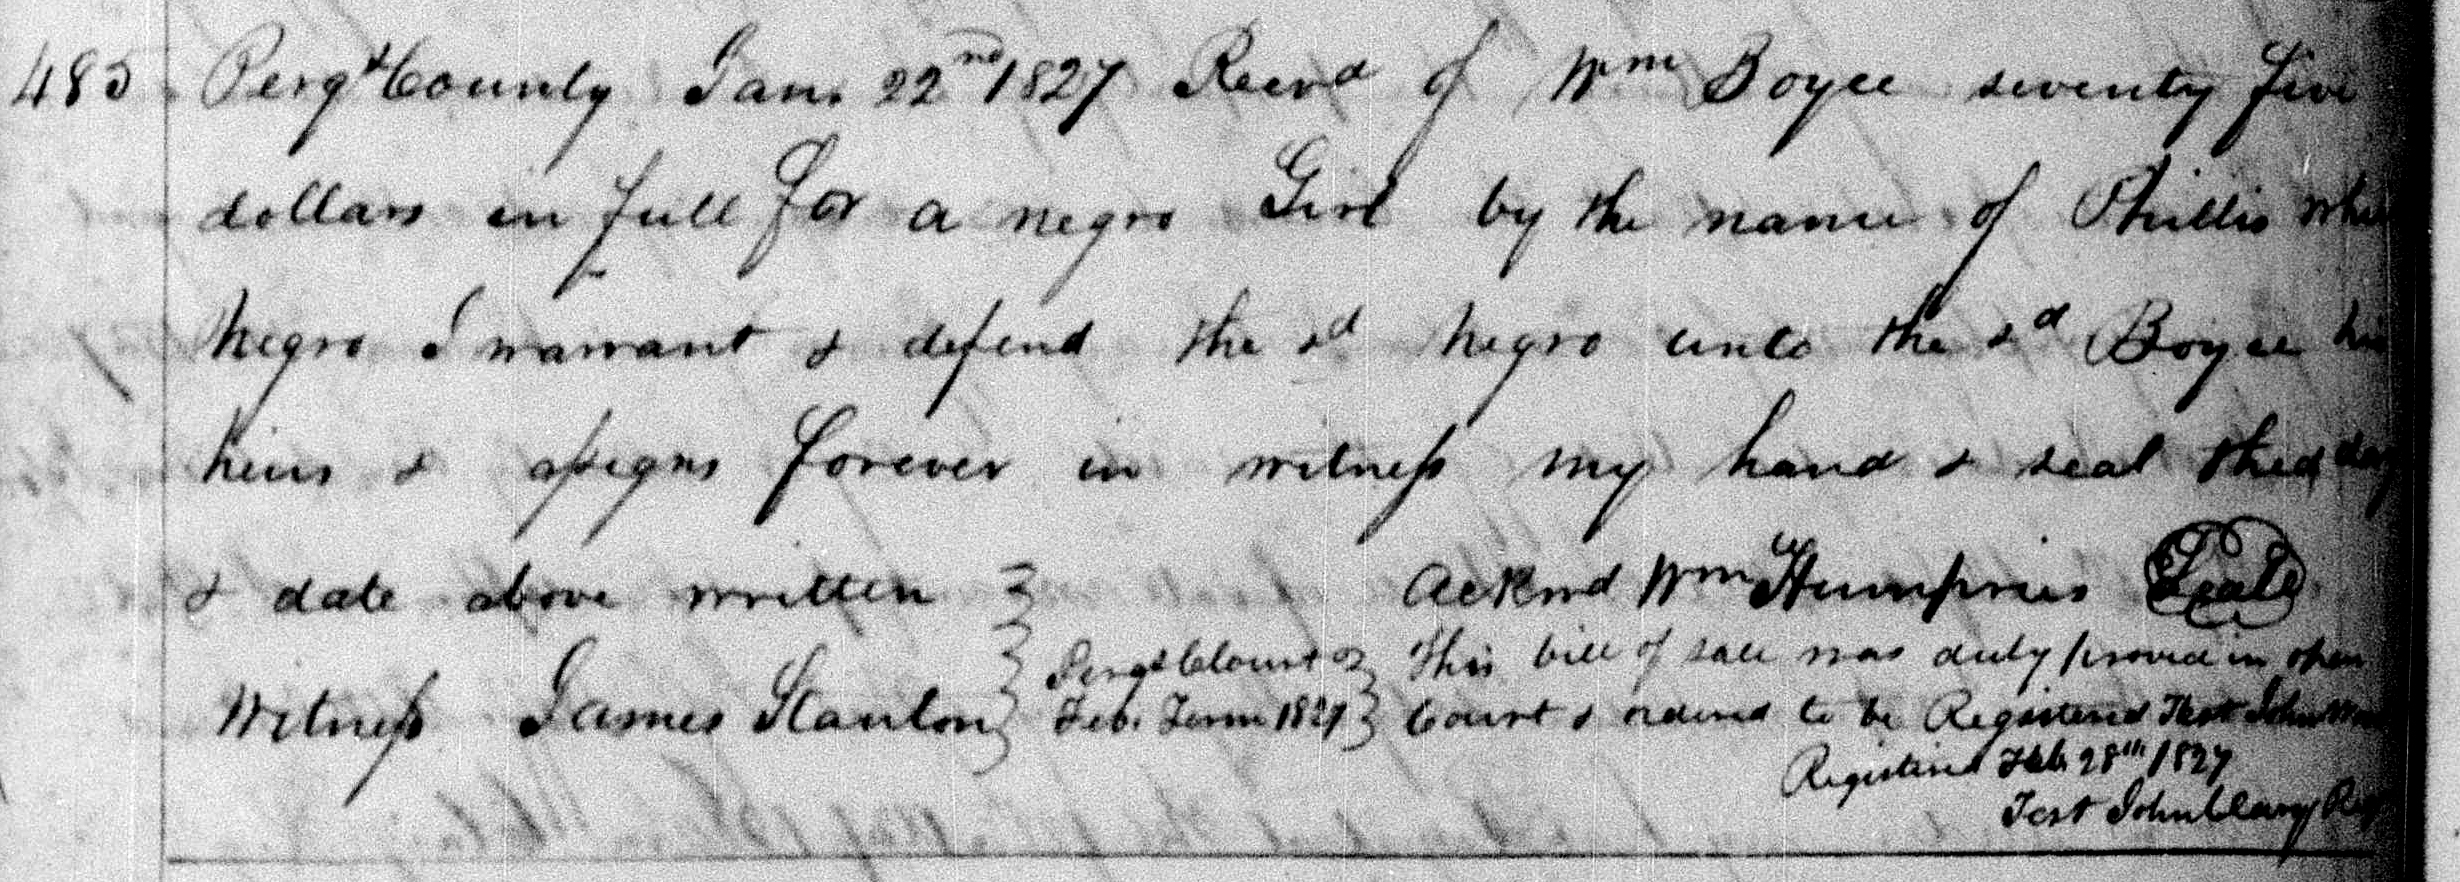 485 Perqs County Jan. 22nd 1827 Receivd of Wm Boyce seventy five
dollars in full for a negro Girl by the name of Phillis
Negro I warrant & defend the sd Negro unto the sd Boyce his
heirs & assigns forever in witness my hand & seal the day
& date above written
Acknd Wm Humphries Seal
Witness James Stanton
Perqs County
Feb. Term 1827
This bill of sale was duly proved in open
Court & ordered to be Registered Test John
Registered Feb 28th 1827
Test John Clary Regr